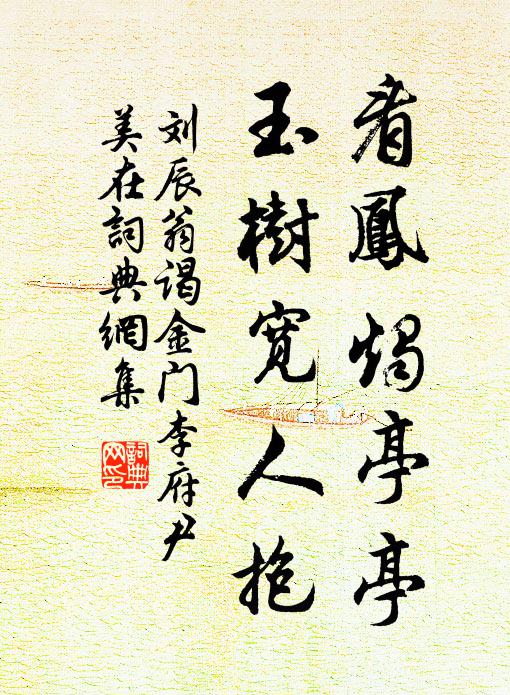 看鳳燭亭亭
玉樹寛人抱
刘辰翁谒金门李府尹
美在詞典網集
詞典网印